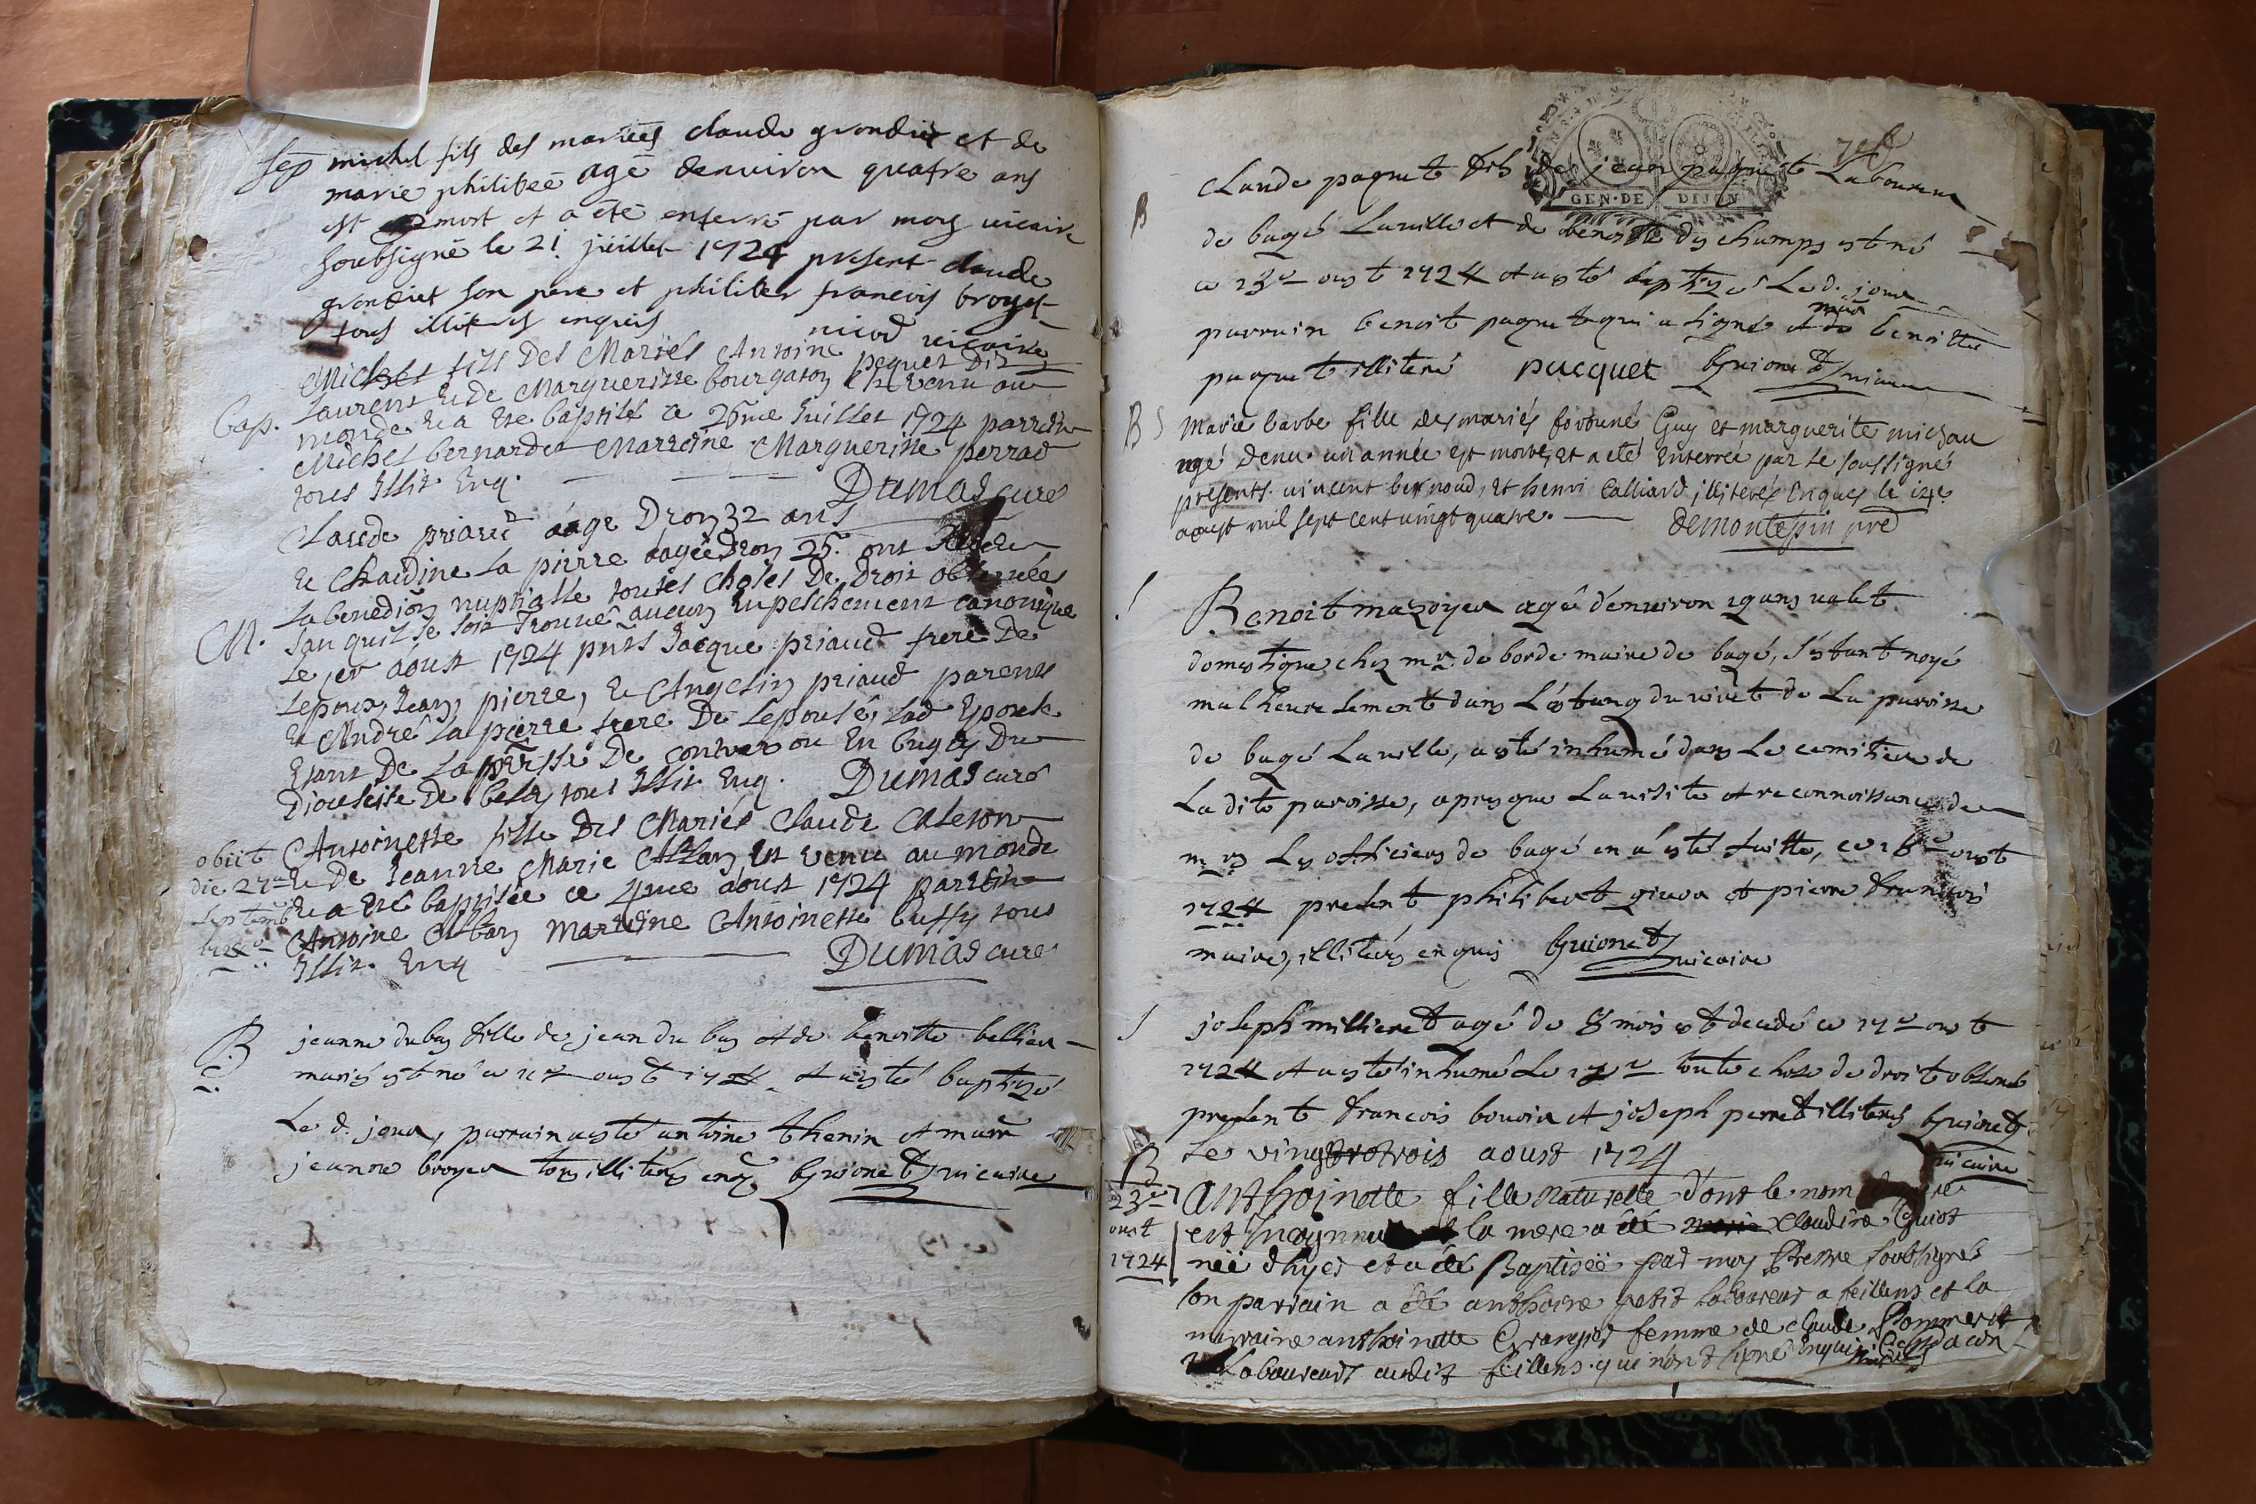 Sep michel fils des mariés claude grondier et de
marie philibée agé denuiron quatre ans
est mort et a été enterré par moy vicaire
soubsigné le 21 juillet 1724 present claude
grondier son pere et philiber francois broyer
tous illiterés enquis nicod vicaire
Michel fils Des Mariés Antoine pequet dit
Laurent et de Marguerite bourgaron Est venu au
bap. monde et a ete baptisé ce 26me juillet 1724 parrein
Michel bernardet Marreine Marguerite perrad
tous Illit. Enq. Dumas curé
Claude priaud aage Dron 32 ans
et Claudine La pierre aagée Dron 25. ont
La benedion nuptialle toutes choses De Droit observées
M. san quil se soit trouvé aucun Enpeschement canonique
Le 1er aoust 1724 pnts Jacque priaud frere De
Lepoux, Jean, pierre, et Angelin priaud parents
et André La pierre frere De Lepouse, Lad Epouse
Etant De La De en bugey Du
Diocese De beley tous Illit. Enq. Dumas curé
obiit Antoinette fille Des Mariés Claude
die 27a et De Jeanne Marie Est venu au monde
septembris et a Eté baptisée ce 4me aoust 1724 parrein
Antoine marreine Antoinette buffy tous
Illit. Enq Dumas curé
B jeanne dubuy fille de jean du buy et de benoitte bellier
mariés est né ce 11e oust 1724 et a esté baptizé
Le d. jour, parrain a esté antoine thenin et marr
jeanne broyer tous illiterés enq. Guionet vicaire
GEN · DE DIJON
B claude paquet fils de jean paquet Laboureur
de bugé Laville et de benoitte des champs est né
ce 13e oust 1724 et a esté baptizé Le d. jour
parrain benoit paquet qui a signé et mar benoitte
paquet illiteré pacquet Guionet vicaire
B S Marie barbe fille des mariés fortuné Guy et marguerite michau
agé denu. un année est morte, et a été Enterrée par le soussigné
présents. vincent bernoud, et henri Calliard illiterés Enques le 14e
aoust mil sept cent vingt quatre. demontessuy pré
Benoit mazoyer agé d'enuiron 19 ans valet
domestique chez mr. de borde maire de bagé, s'estant noyé
malheureusement dans L'estang du rivet de La paroisse
de bagé Laville, a esté inhumé dans Le cemitiere de
La dite paroisse, apres que La visite et reconnoissance de
mrs Les officiers de bagé en a esté faitte, ce 16e oust
1724 present philibert et pierre francois
maire, illiterés enquis Guionet vicaire
S joseph millieret agé de 8 mois est decedé ce 17e oust
1724 et a esté inhumé Le toute chose de droit observé
present francois bouvier et joseph perret illiterés Guionet
vicaire
Le vingt trois aoust 1724
B 23e oust 1724 anthoinette fille naturelle d'ont le nom
est Incognnu la mere a été claudine Guiot
neé d'hyer et a été Baptiseé par moy Prestre soubsigné
son parrain a été anthoine petit laboureur a feillens et la
marraine anthoinette femme de claude Pommeret
Laboureur audit feillens. qui n'ont signé Enquis